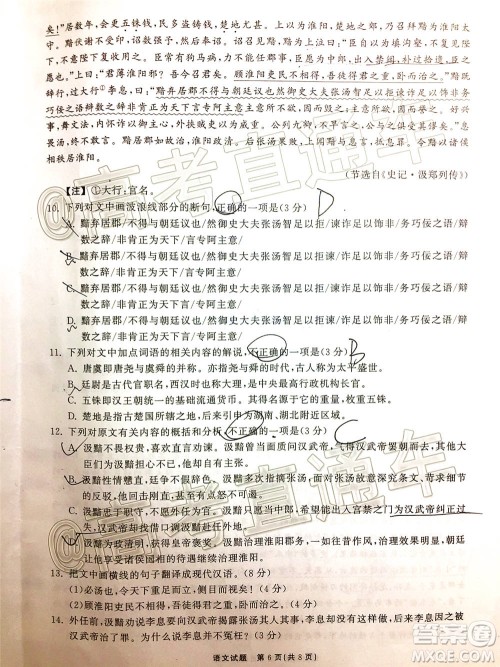 矣！”居数年，会更五铢钱，民多盗铸钱，楚地尤甚。上以为淮阳，楚地之郊，乃召拜黯为淮阳太
守。黯伏谢不受印，诏数强予，然后奉诏。诏召见黯，黯为上泣曰：“臣自以为填沟壑，不复见陛
下，不意陛下复收用之。臣常有狗马病，力不能任郡事，臣愿为中郎，出入禁闼，补过拾遗，臣之
愿也。”上曰：“君薄淮阳邪？吾今召君矣。顾淮阳吏民不相得，吾徒得君之重，卧而治之。”黯既辞
行，过大行①李息，曰：“黯弃居郡不得与朝廷议也然御史大夫张汤智足以拒谏诈足以饰非务
巧佞之语辩数之辞非肯正为天下言专阿主意。主意所不欲，因而毁之；主意所欲，因而誉之。好兴事，
舞文法，内怀诈以御主心，外挟贼吏以为威重。公列九卿，不早言之，公与之俱受其僇矣。”息
畏汤，终不敢言。黯居郡如故治，淮阳政清。后张汤果败，上闻黯与息言，抵息罪。令黯以诸侯
相秩居淮阳。
（节选自《史记·汲郑列传》）
【注】①大行：官名。
10. 下列对文中画波浪线部分的断句，正确的一项是（3 分） D
A. 黯弃居郡/不得与朝廷议也/然御史大夫张汤智足以拒/谏诈足以饰非/务巧佞之语/辩
数之辞/非肯正为天下/言专阿主意/
B. 黯弃居郡/不得与朝廷议也/然御史大夫张汤智足以拒/谏诈足以饰非/务巧佞之语/辩
数之辞/非肯正为天下言/专阿主意/
C. 黯弃居郡/不得与朝廷议也/然御史大夫张汤智足以拒谏/诈足以饰非/务巧佞之语/辩
数之辞/非肯正为天下/言专阿主意/
D. 黯弃居郡/不得与朝廷议也/然御史大夫张汤智足以拒谏/诈足以饰非/务巧佞之语/辩
数之辞/非肯正为天下言/专阿主意/
11. 下列对文中加点词语的相关内容的解说，不正确的一项是（3 分） B
A. 唐虞即唐尧与虞舜，亦指尧与舜的时代，古人以为太平盛世。
B. 廷尉是古代官职名，西汉时位列三公，是中央最高司法审判机构长官。
C. 五铢即汉武帝统一的基本流通货币，其得名是由于钱重五铢。
D. 楚地是指古楚国所辖之地，后成为地域名称，位于如今湖南、湖北附近。
12. 下列对原文有关内容的概括和分析，不正确的一项是（3 分） C
A. 汲黯不畏权贵，喜欢直言劝谏。汲黯曾当面质问汉武帝，气得汉武帝罢朝而去，大臣
们都为汲黯担心不已，但汉武帝只是认为汲黯太愚直。
B. 汲黯为人忠直，敢于指责同僚。汲黯多次在皇帝面前指责张汤，说张汤办事随意更
改高祖定下的规章制度，还会因此而断子绝孙。
C. 汲黯体弱多病，但仍忠心为主。汲黯身体多病，仍想要出入宫禁之门为汉武帝纠正过
失，汉武帝却命令他立刻去上任。
D. 汲黯为政清明，获得皇帝褒奖。汲黯到淮阳郡任职后，一如往昔作风，治理淮阳郡政
治清明，汉武帝让他享受诸侯国相的待遇继续治理淮阳。
13. 把文中画横线的句子翻译成现代汉语。（8 分）
(2)顾淮阳吏民不相得，吾徒得君之重，卧而治之。（4 分）
14. 外任前，汲黯去见李息想让他向汉武帝揭露张汤，但李息没有这样做，张汤事败后李息因此被
汉武帝治了罪。为什么李息不向汉武帝揭露张汤？请简要说明。（3 分）
语文试题 第 6 页（共 8 页）
高考直通车
高考直通车